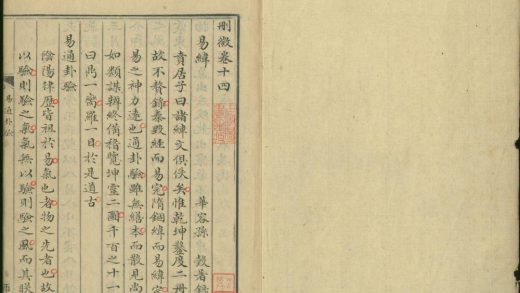 刪微卷十四
易緯 華容孫 瑴著錄
賁居子曰諸緯文俱佚矣惟乾坤鑿度二冊
故不贅錄秦毀經而易完隋錮緯而易緯完
易之神力遠也通卦驗雖無繕本而散見尚
如類謀辨終備稽覽坤靈二圖千百之十一
曰一於是道古
易通卦驗
陰陽律歷皆祖於易氣也者物之先者也故
以驗則驗之氣氣無以驗則驗之風而其朕
易通卦驗